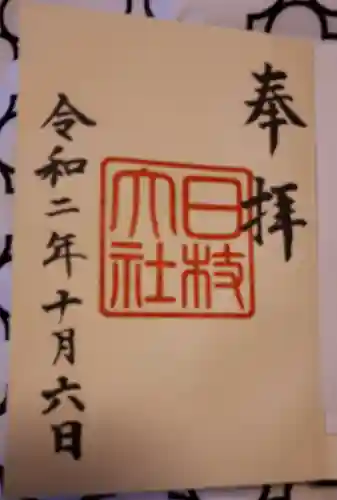 奉拝
日枝
大社
令和二年十月六日